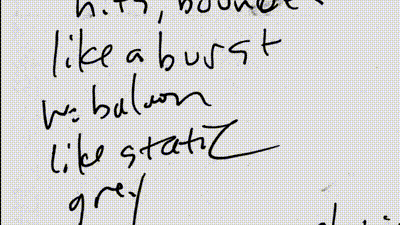 hits,
like a burst
baloon
like static
grey